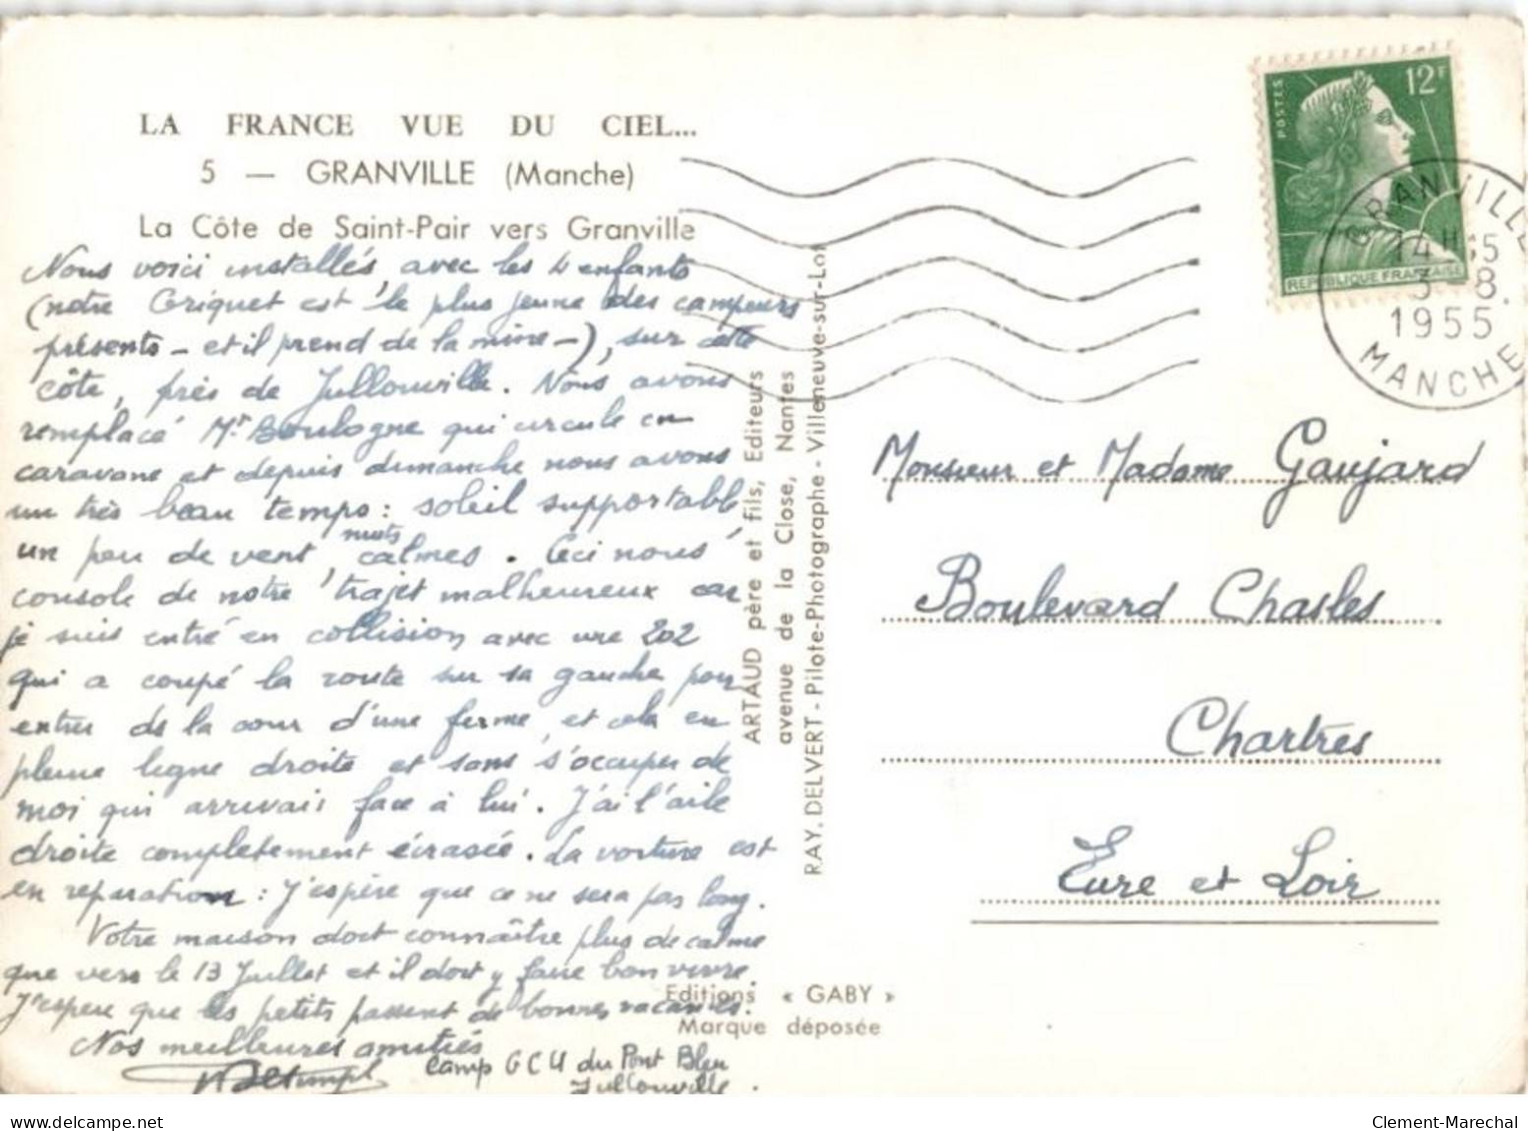 LA FRANCE VUE DU CIEL...
5 — GRANVILLE (Manche)
La Côte de Saint-Pair vers Granville
Nous voici installés, avec les 4 enfants
(notre Criquet est le plus jeune des campeurs
présents - et il prend de la mine -), sur cette
côte, près de Jullouville. Nous avons
remplacé Mr Boulogne qui circule en
caravane et depuis dimanche nous avons
un très beau temps : soleil supportable,
un peu de vent, nuits calmes. Ceci nous
console de notre trajet malheureux car
je suis entré en collision avec une 202
qui a coupé la route sur sa gauche pour
entrer ds la cour d'une ferme, et cela en
pleine ligne droite et sans s'occuper de
moi qui arrivais face à lui. J'ai l'aile
droite complètement écrasée. La voiture est
en réparation : J'espère que ce ne sera pas long.
Votre maison doit connaître plus de calme
que vers le 13 Juillet et il doit y faire bon vivre.
J'espère que les petits passent de bonnes vacances.
Nos meilleures amitiés
Camp GCU du Pont Bleu
Jullouville.
ARTAUD père et fils, Editeurs
avenue de la Close, Nantes
RAY. DELVERT - Pilote-Photographe - Villeneuve-sur-Lot
Editions « GABY »
Marque déposée
POSTES
12F
REPUBLIQUE FRANÇAISE
GRANVILLE
14H 15
3-8
1955
MANCHE
Monsieur et Madame Gaujard
Boulevard Chasles
Chartres
Eure et Loir
Clement-Marechal
delcampe.net